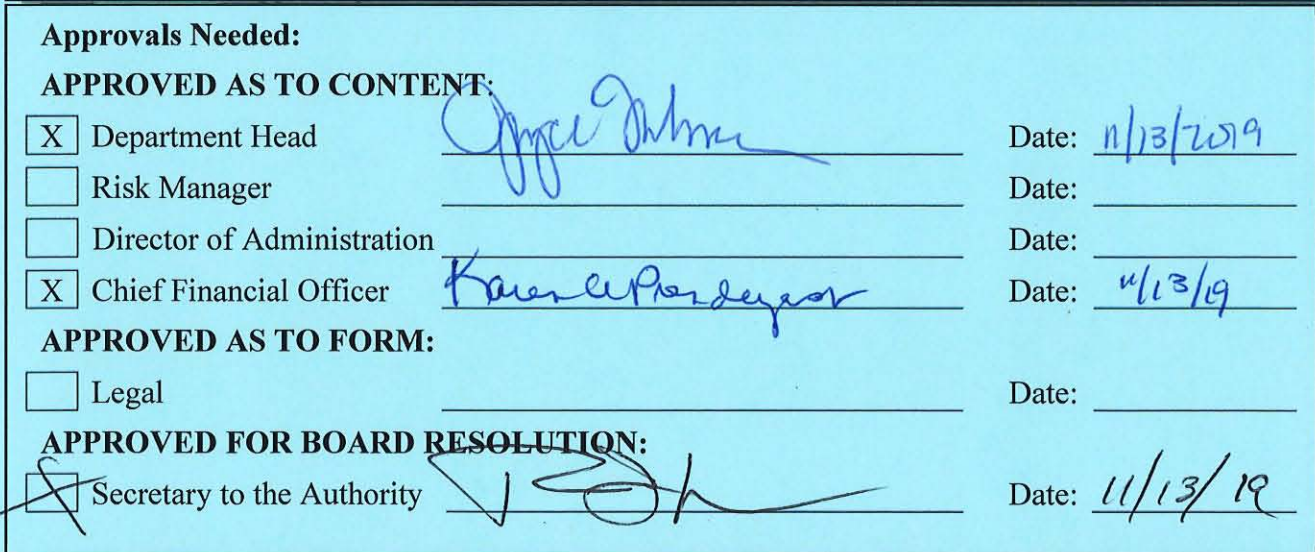 Approvals Needed:
APPROVED AS TO CONTENT:
X Department Head Date: 11/13/2019
Risk Manager Date:
Director of Administration Date:
X Chief Financial Officer Karen Date: 11/13/19
APPROVED AS TO FORM:
Legal Date:
APPROVED FOR BOARD RESOLUTION:
X Secretary to the Authority Date: 11/13/19